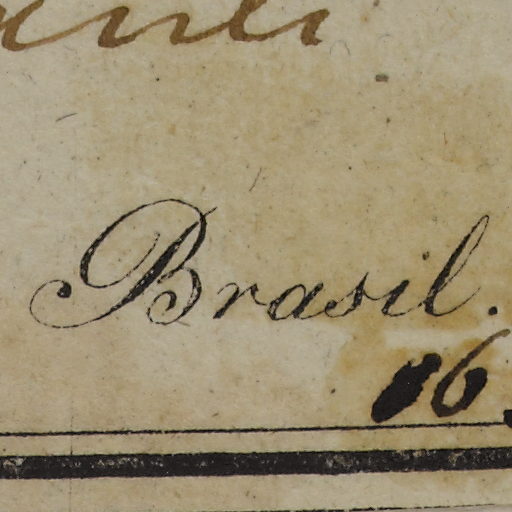 Brasil.
16